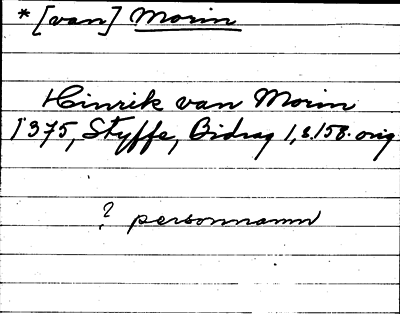 * [van] Morin
Hinrik van Morin
1375, Styffe, Bidrag 1, s. 158. orig
? personnamn